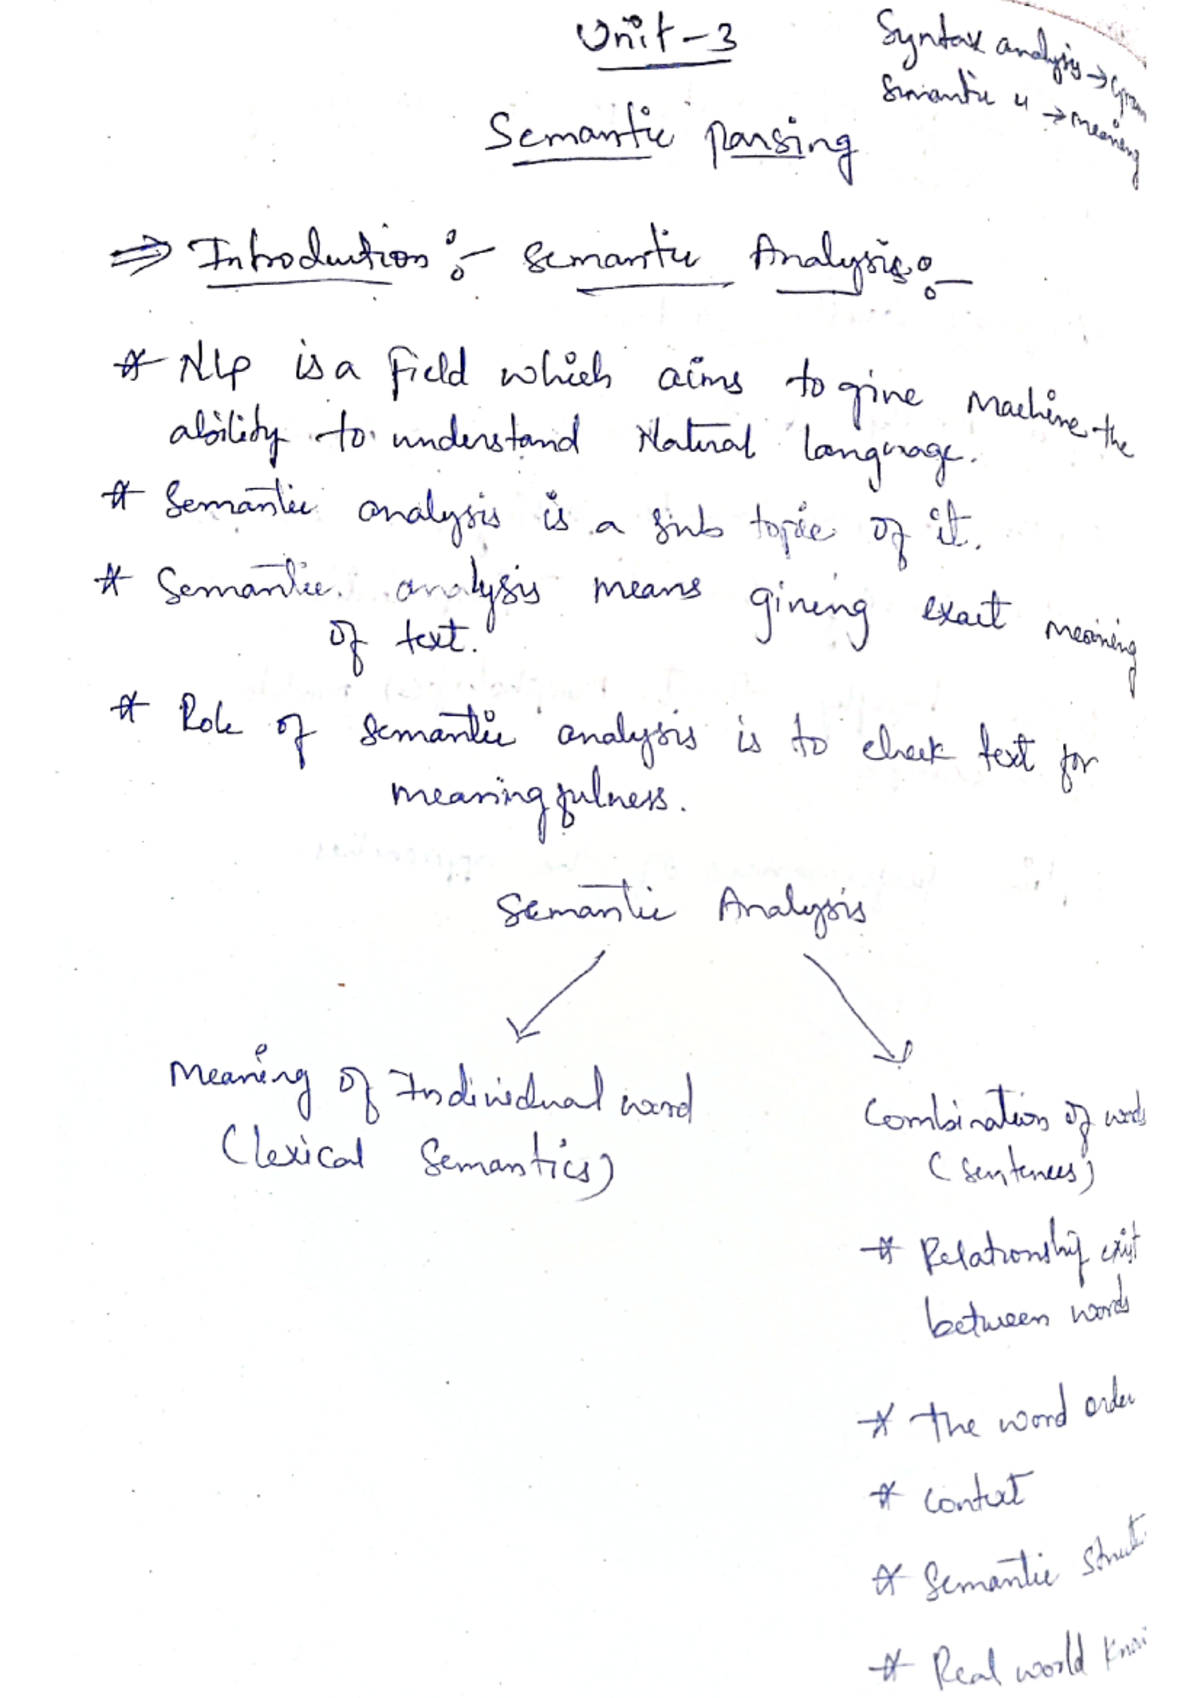 Unit-3
Syntax analysis →
Semantic " → meaning
Semantic parsing
⇒ Introduction:- Semantic Analysis:-
* NLP is a field which aims to give Machine the
ability to understand Natural language.
* Semantic analysis is a sub topic of it.
* Semantic analysis means giving exact meaning
of text.
* Role of semantic analysis is to check text for
meaningfulness.
Semantic Analysis
Meaning of Individual word
(lexical Semantics)
Combination of words
(sentences)
* Relationship exist
between words
* The word order
* Context
* Semantic
* Real world